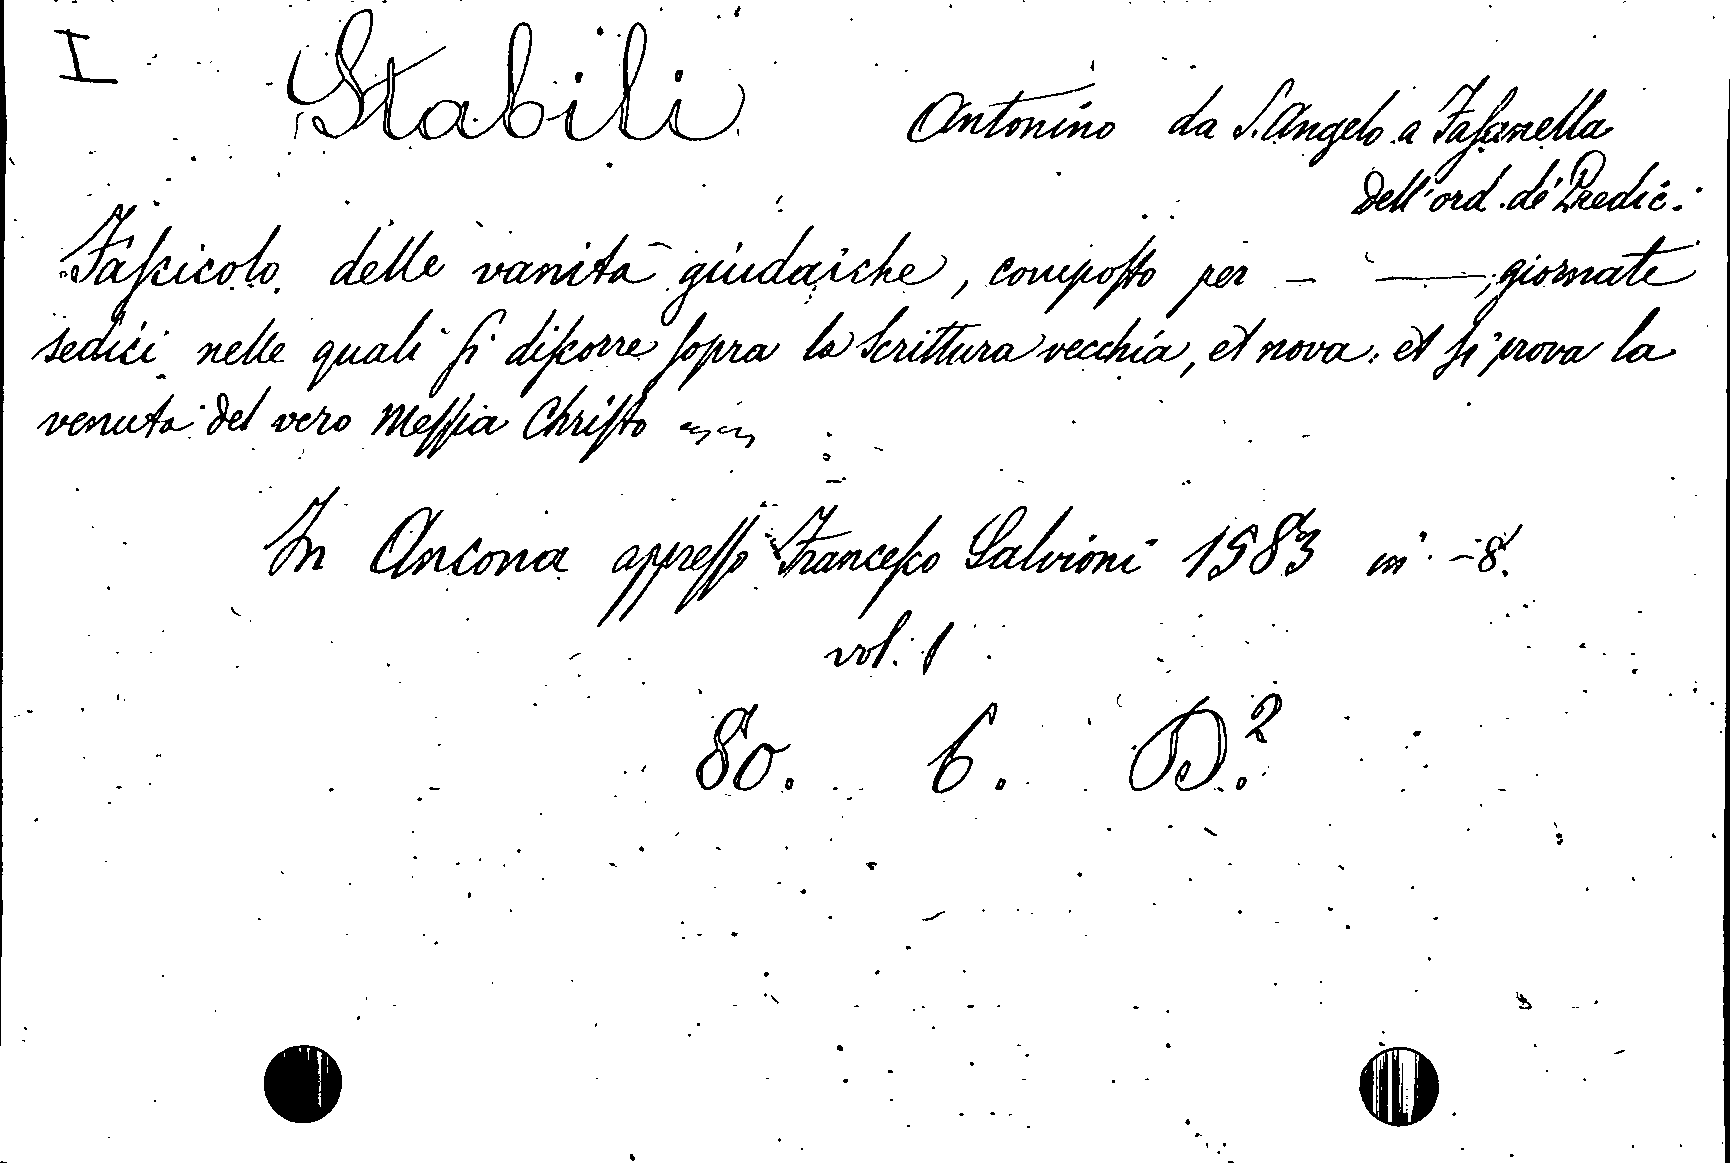 I Stabili Antonino da S. Angelo a Fasanella
Dell'ord. de' Predic.
Faſcicolo delle vanità giudaiche, compoſto per - —, giornate
sedici nelle quali ſi diſcorre ſopra la Scrittura vecchia, et nova: et ſi prova la
venuta del vero Meſſia Chriſto
In Ancona appreſſo Franceſco Salvioni 1583 in -8.
vol. 1
80. 6. D.²